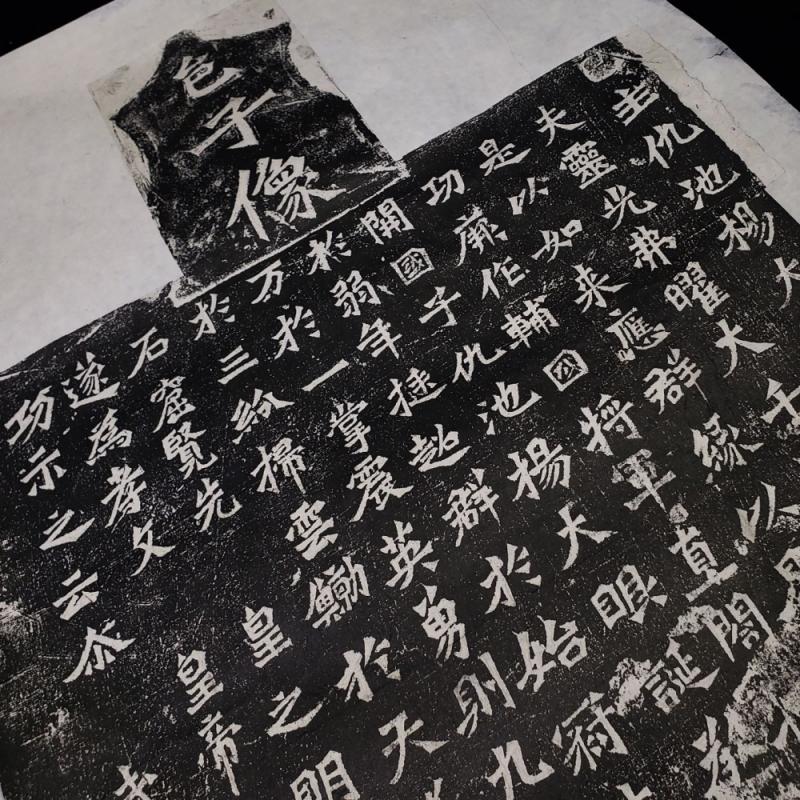 邑子像
主仇池楊大
夫靈光弗曜大千
是以如来應群緣以
功厥作輔國將軍直閤
開國子仇池楊大眼誕
於弱年挺超群於始冠
万於一掌震英勇則九
於三紛掃雲於天
石窟覽先皇之明
遂為孝文皇帝
功示之云尒武